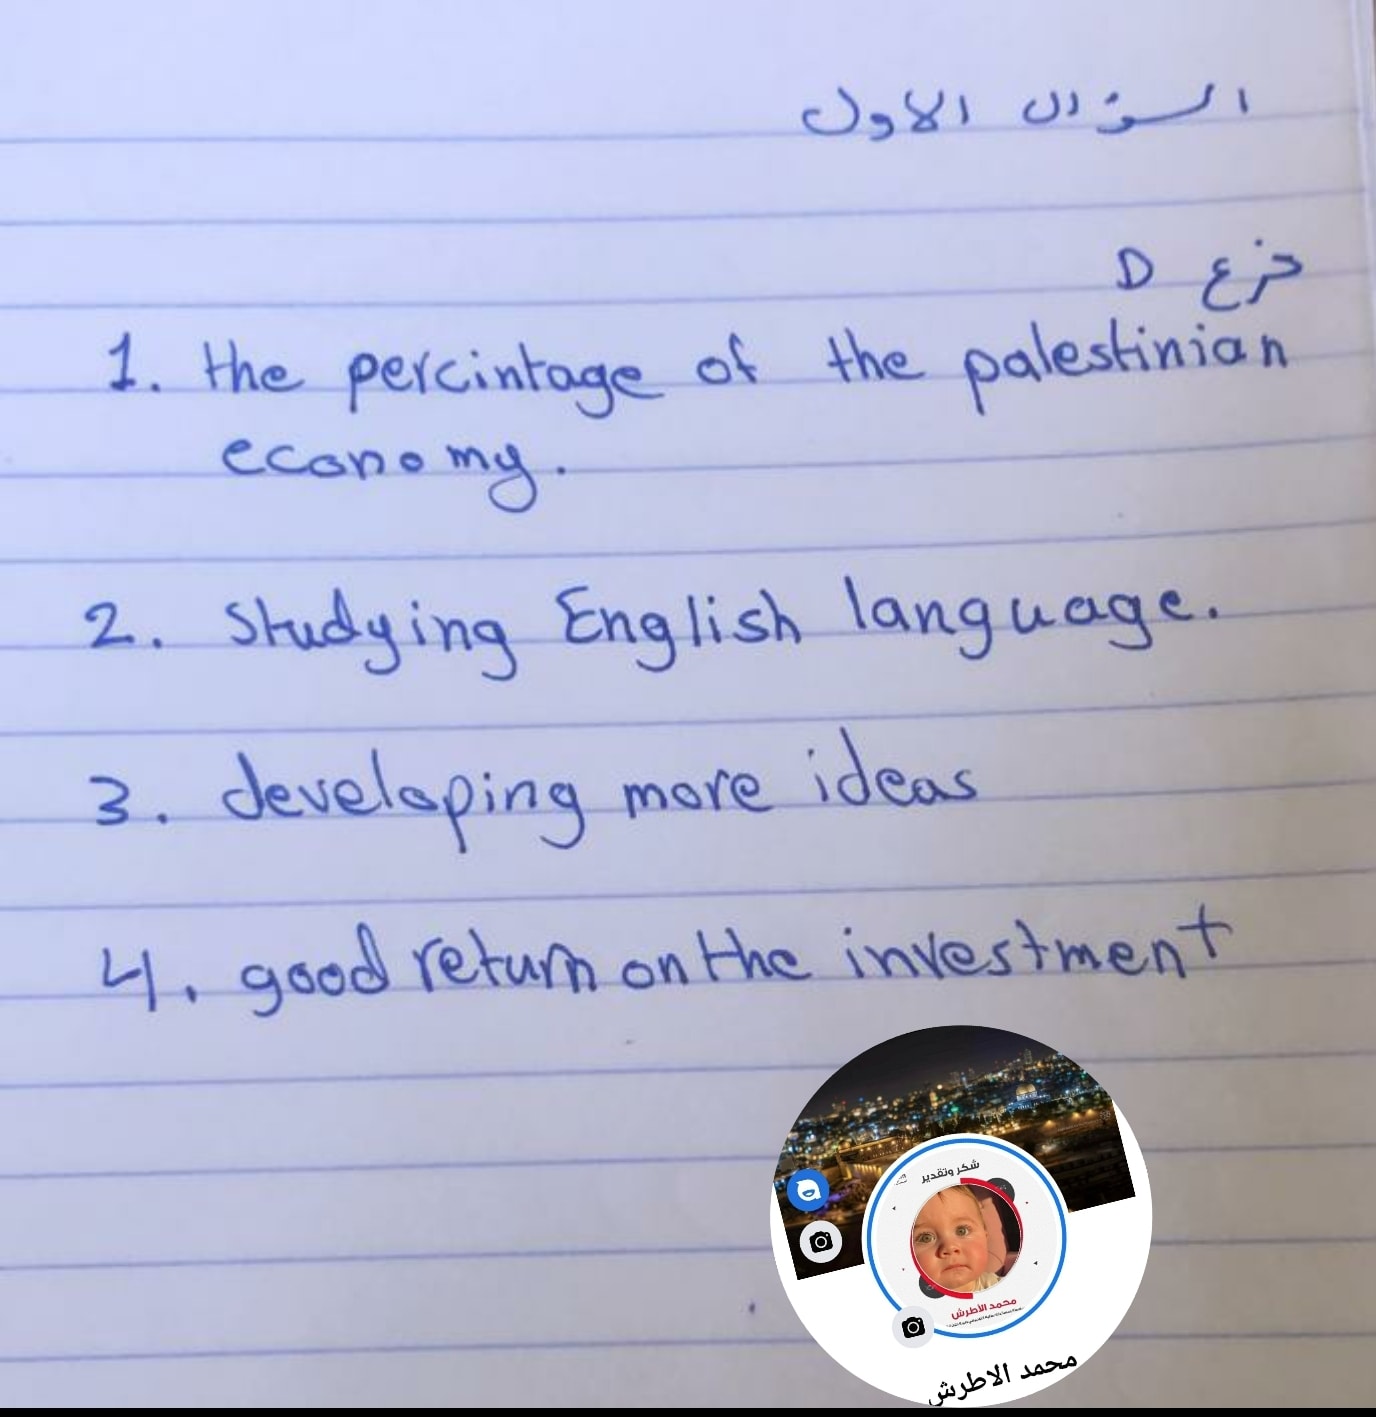 السؤال الاول
فرع D
1. the percintage of the palestinian
economy.
2. studying English language.
3. developing more ideas
4. good return on the investment
شكر وتقدير
محمد الأطرش
محمد الاطرش